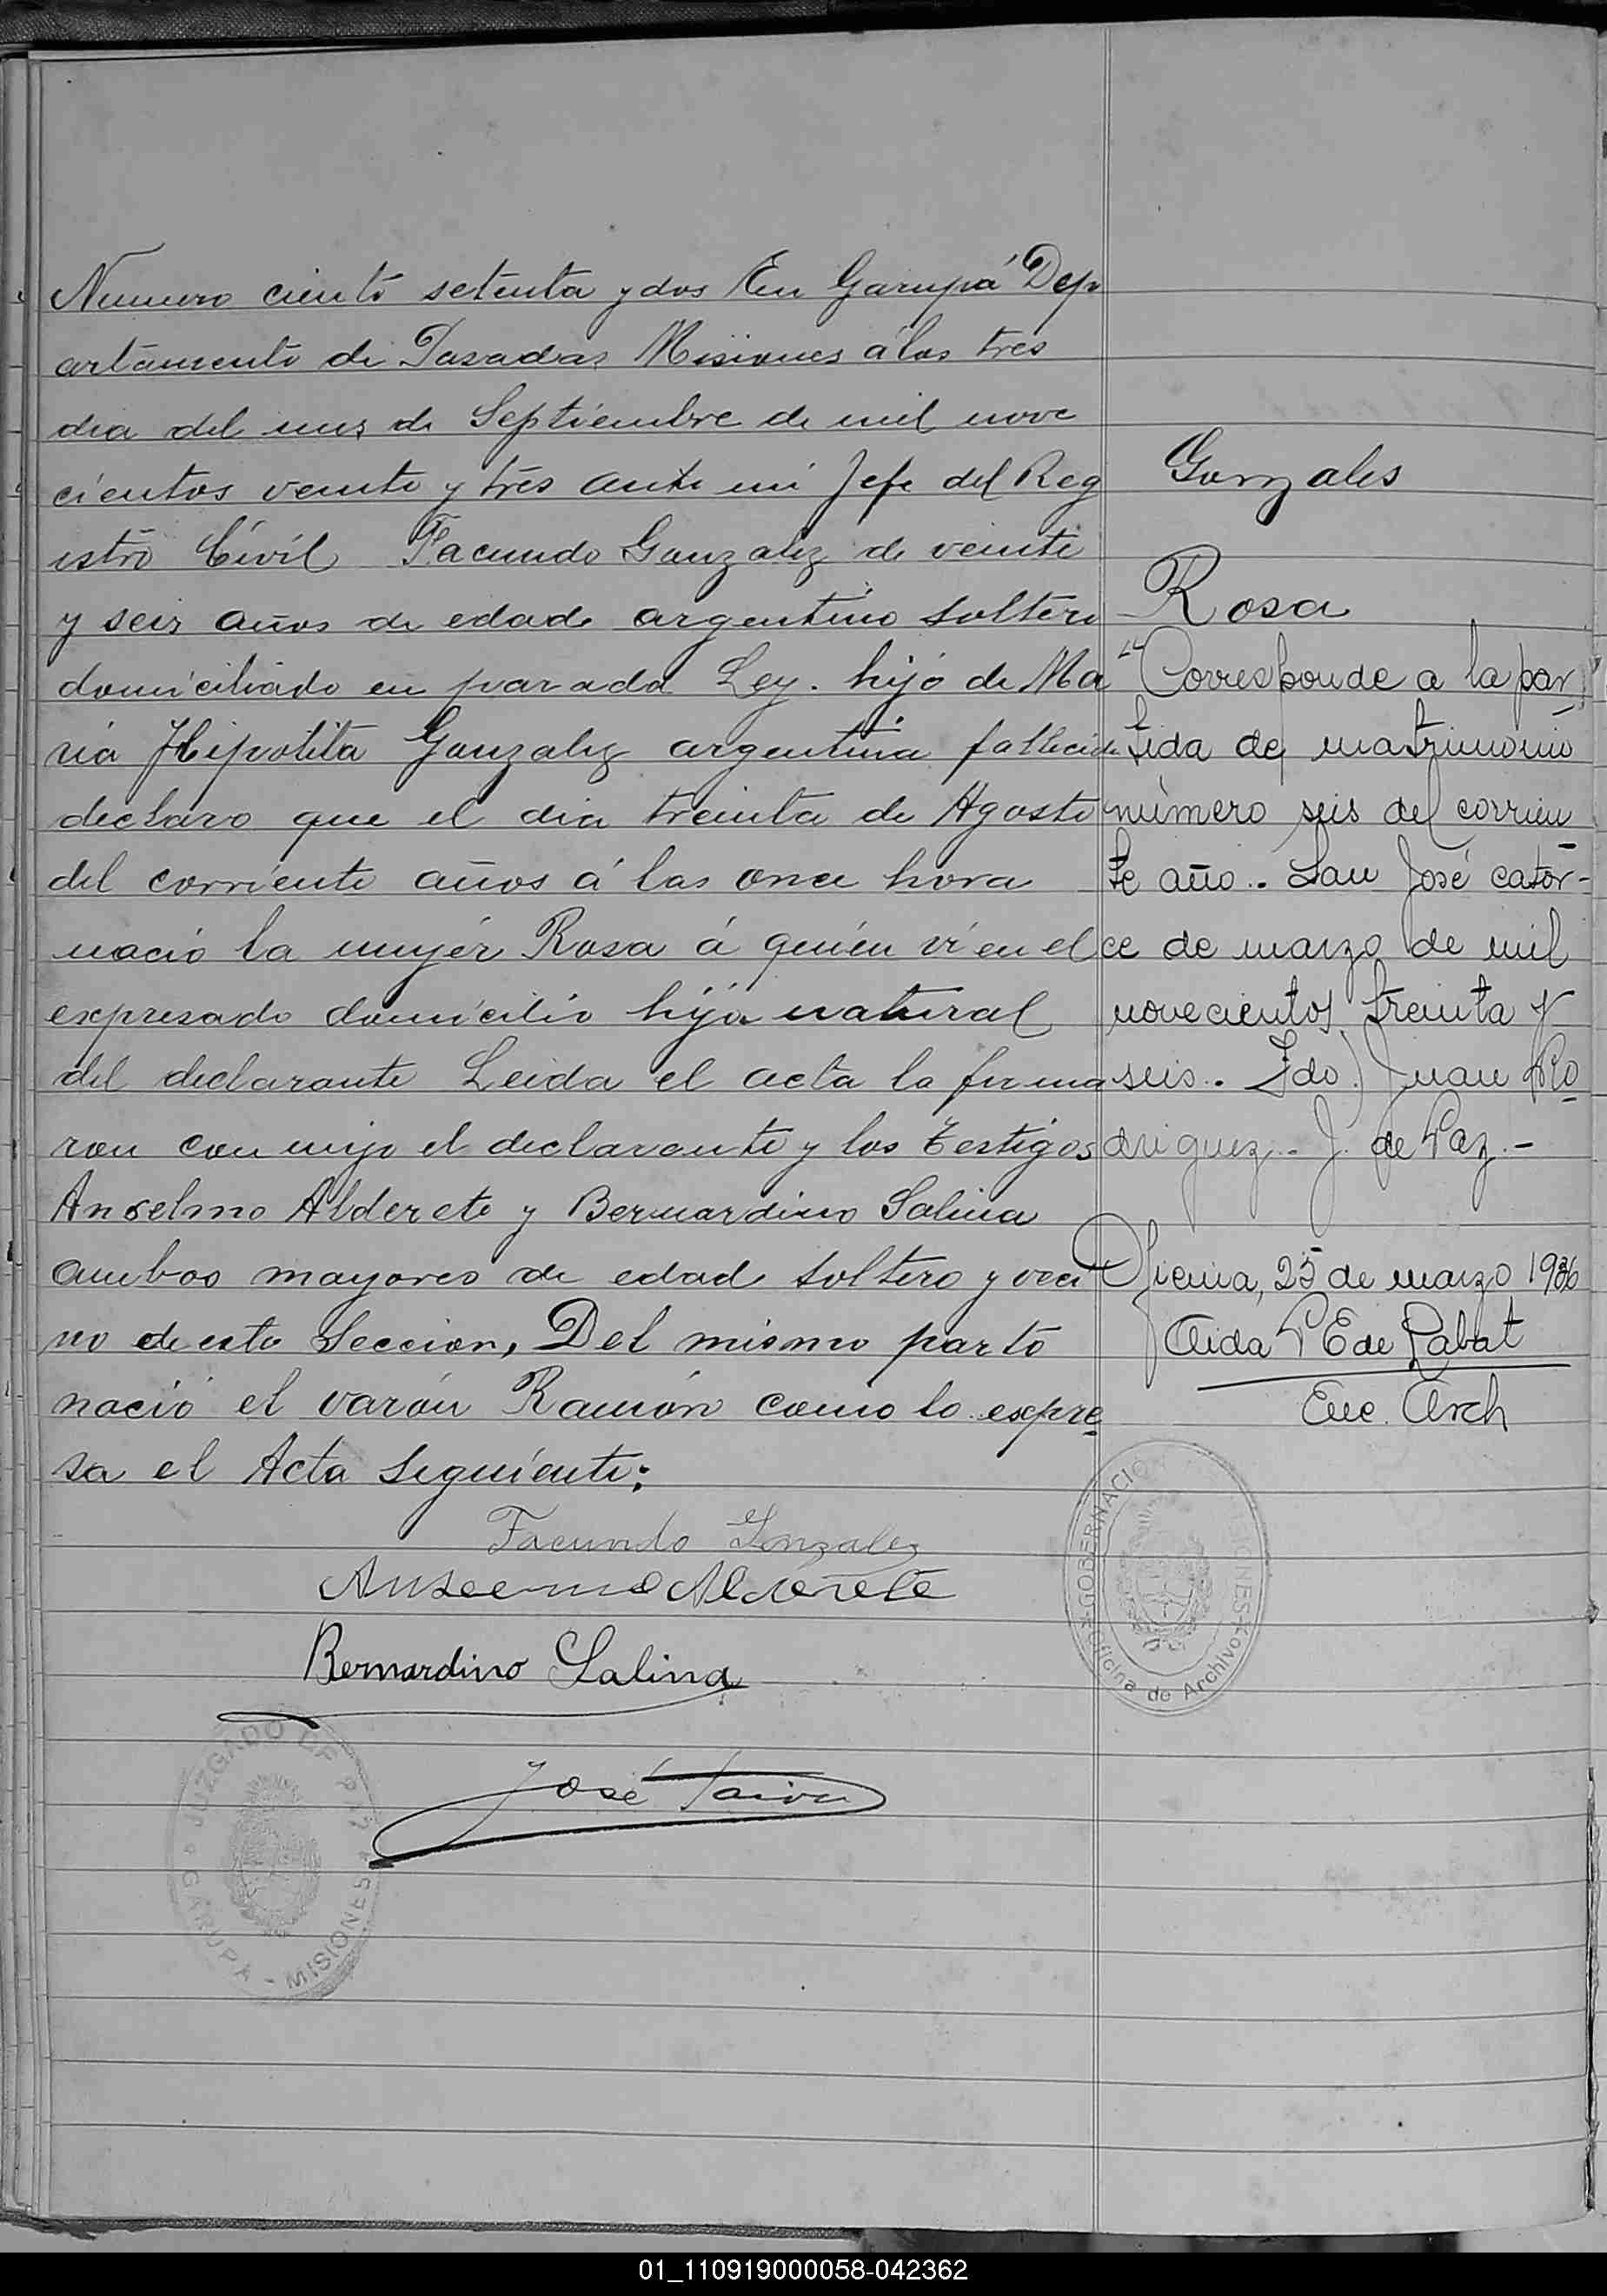 Numero ciento setenta y dos En Garupá Dep
artamento de Posadas Misiones á los tres
dia del mes de Septiembre de mil nove
cientos veinte y tres ante mi Jefe del Reg
istro Civil Facundo Gonzalez de veinte
y seis años de edad argentino soltero
domiciliado en parada Ley. hijo de Ma
ria Hipolita Gonzalez argentina fallecida
declaro que el dia treinta de Agosto
del corriente años á las once hora
nació la mujer Rosa á quién ví en el
expresado domicilio hija natural
del declarante Leida el acta la firma
ron con migo el declarante y los Testigos
Anselmo Alderete y Bernardino Salina
ambos mayores de edad soltero y veci
no de esta Seccion, Del mismo parto
nació el varón Ramón como lo expre
sa el Acta Siguiente:
Facundo Gonzalez
Anselmo Alderete
Bernardino Salina
José Paiva
JUZGADO DE PAZ
GARUPA - MISIONES
Gonzales
Rosa
"Corresponde a la par
tida de matrimonio
número seis del corrien
te año.. San José cator-
ce de marzo de mil
novecientos treinta y
seis.. Fdo.) Juan Ro
driguez.- J. de Paz.-
Oficina, 25 de marzo 1936
Aida P E de Labat
Enc. Arch
GOBERNACION MISIONES
Oficina de Archivo
01_110919000058-042362